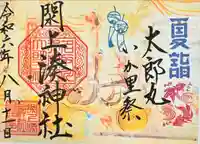 夏詣
太郎丸
いか里祭
閖上湊神社
令和六年八月十一日